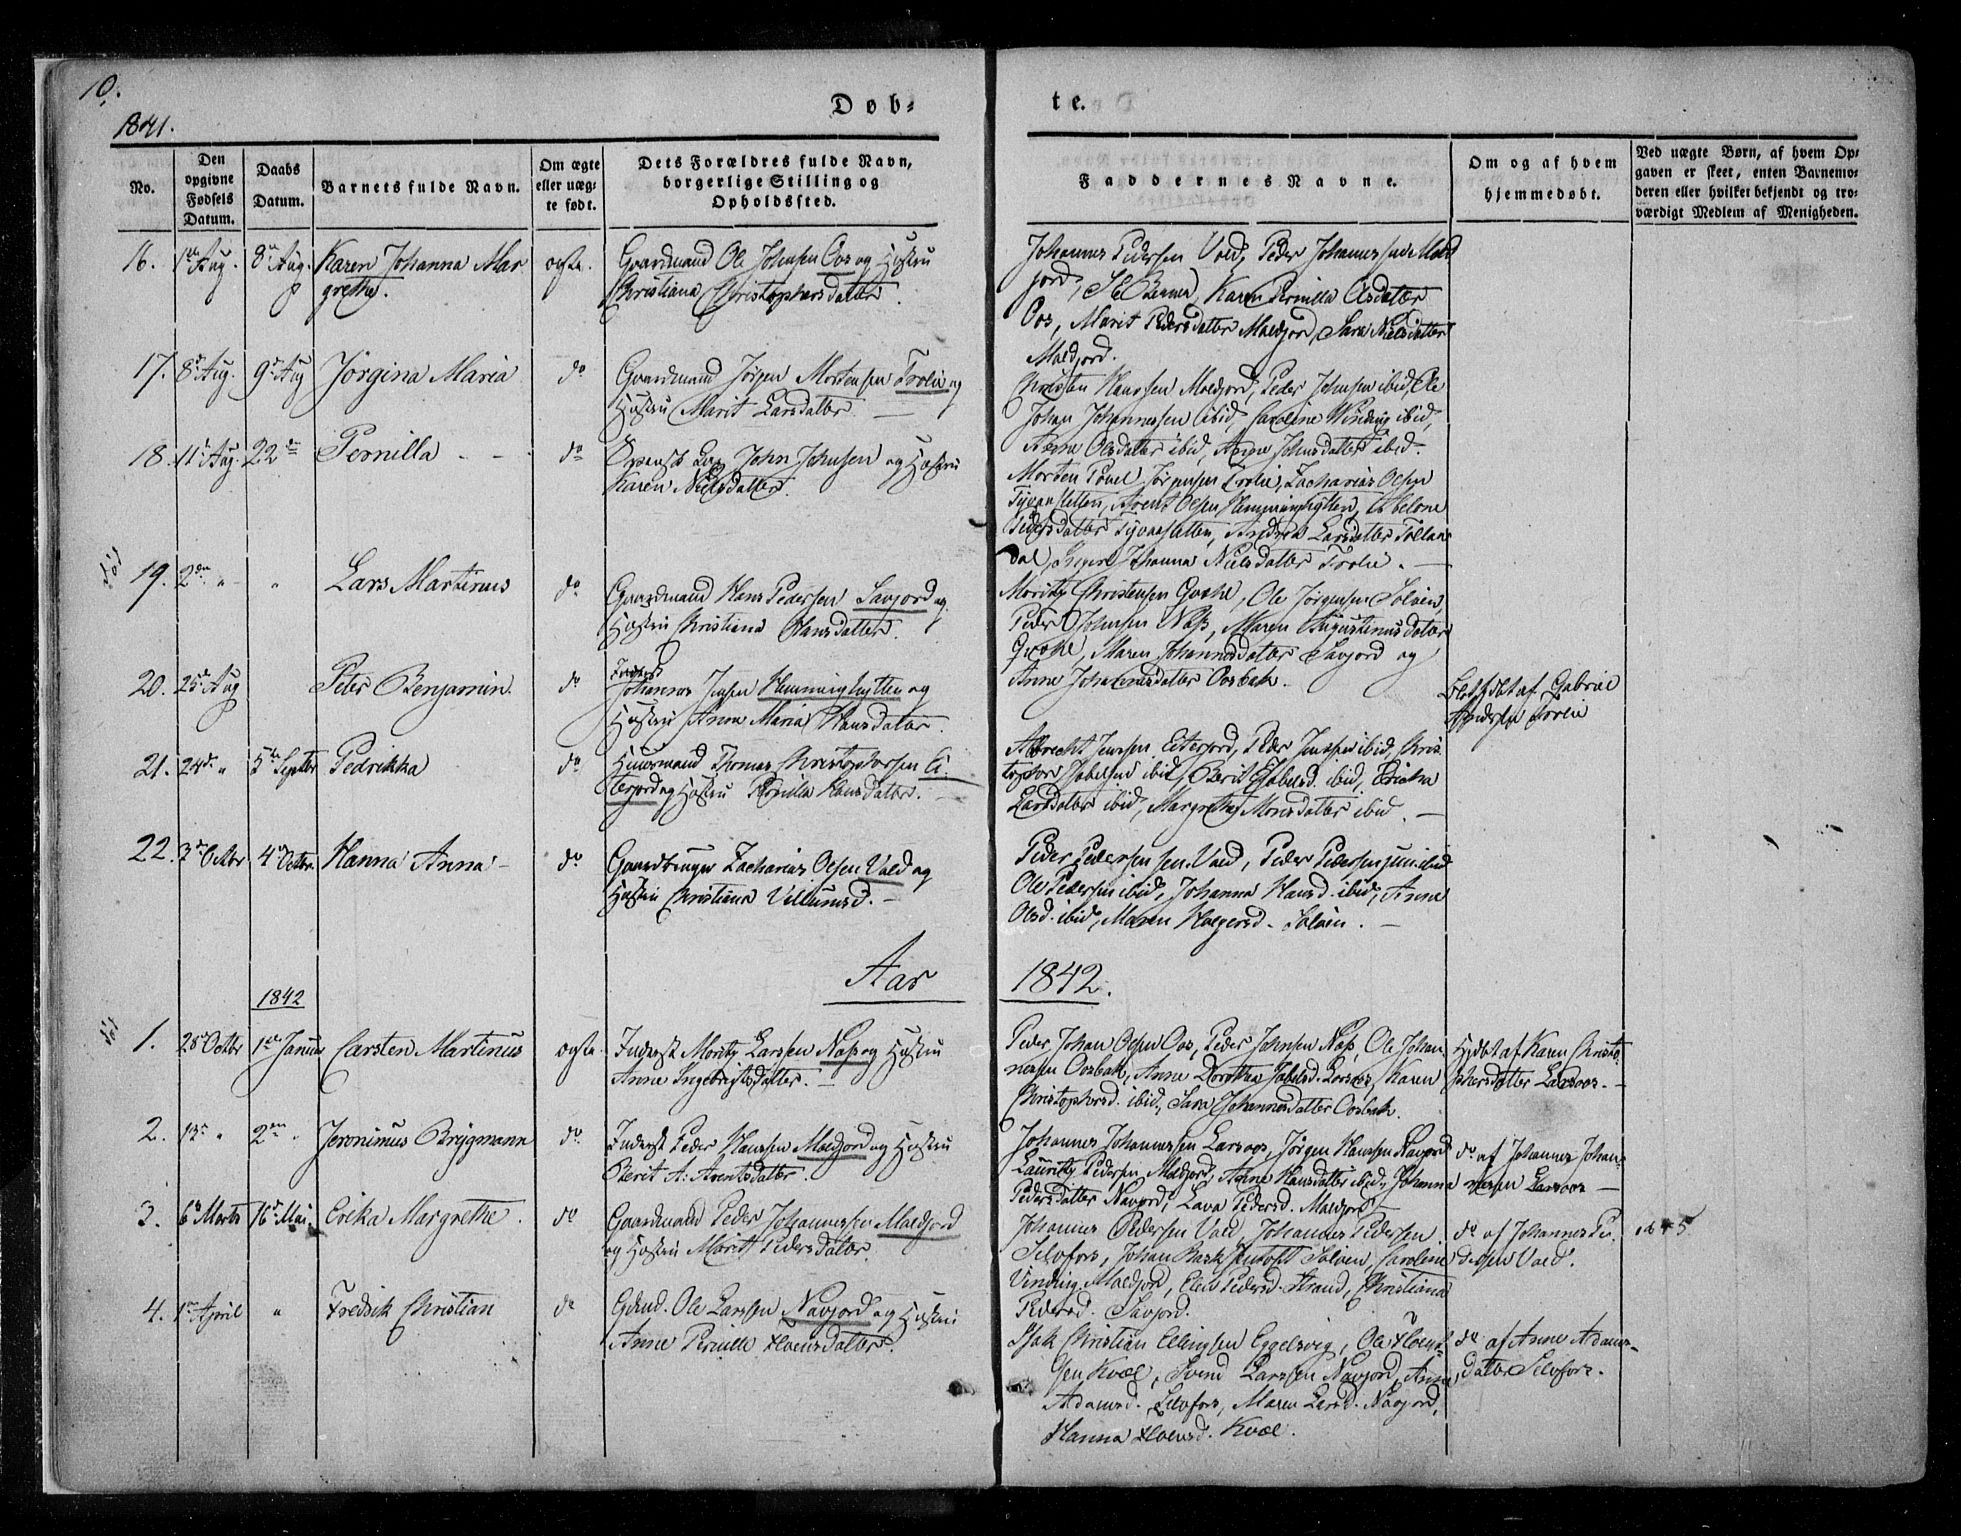 10.
1841.
Døb-
te.
No.
Den opgivne Fødsels Datum.
Daabs Datum.
Barnets fulde Navn.
Om ægte eller uægte født.
Dets Forældres fulde Navn, borgerlige Stilling og Opholdssted.
Faddernes Navne.
Om og af hvem hjemmedøbt.
Ved uægte Børn, af hvem Opgaven er skeet, enten Barnemoderen eller hvilket bekjendt og troværdigt Medlem af Menigheden.
16. 1ste Aug. 8de Aug. Karen Johanna Mar
grethe.
ægte.
Gaardmand Ole Johnsen Oos og Hustru
Christiana Christophersdatter.
Johannes Pedersen Vold, Peder Johannessen Mæl
jord, Karen Pernilla Olsdatter
Oos, Marit Pedersdatter Mæljord, Sara Nielsdatter
Mæljord.
17. 8de Aug. 9de Aug Jörgina Maria do
Gaardmand Jörgen Mortensen Trolie og
Hustru Marit Larsdatter.
Christen Hanssen Mæljord, Peder Johnsen ibid, Ole
Johan Johannessen ibid, Caroline Winding ibid,
Anne Olsdatter ibid, Anne Johnsdatter ibid.
18. 11te Aug. 22de Pernilla do
John Johnsen og Hustru
Karen Nielsdatter.
Morten Povel Jörgensen Trolie, Zacharias Olsen
Arent Olsen Hemminghytten, Abelone
Pedersdatter Larsdatter Tollaa
dal, Johanna Nielsdatter Trolie.
19. 2den " " Lars Martinus do
Gaardmand Hans Pedersen Savjord og
Hustru Christiana Hansdatter.
Moritz Christensen Ole Jörgensen Solvien,
Peder Johnsen Næss, Maren Augustinusdatter
Maren Johannesdatter Savjord og
Anne Johannesdatter Oosbak.
20. 25de Aug Peter Benjamin do
Inderst
Johannes Jensen Hemminghytten og
Hustru Anna Maria Hansdatter.
af Gabriel
Andersen Trolie
21. 24de " 5te Septbr Pedrikka do
Huusmand Thomas Christophersen Ei
terjord og Hustru Pernilla Hansdatter.
Albrecht Jenssen Eiterjord, Peder Jenssen ibid, Chris
topher Jabelsen ibid, Berit Jabelsd. ibid, Ericka
Larsdatter ibid, Margrethe Monsdatter ibid.
22. 3de Octbr 4de Octbr. Hanna Anna do
Gaardbruger Zacharias Olsen Vold og
Hustru Christiana Villumsd.
Peder Pedersen sen. Vold, Peder Pedersen jun. ibid
Ole Pedersen ibid, Johanna Hansd. ibid, Anna
Olsd. ibid, Maren Holgersd. Solvien.
Aar 1842.
1842
1. 28de Octbr 1ste Januar Carsten Martinus ægte.
Inderst Moritz Larssen Næss og Hustru
Anne Ingebrigtsdatter.
Peder Johan Olsen Oos, Peder Johnsen Næs, Ole Johan
nessen Oosbak, Anne Dorothea Jabelsd. Larsoos, Karen
Christophersd. ibid., Sara Johannesdatter Oosbak.
Hjdbt af Karen Christo
phersdatter Larsoos.
2. 13de " 2den " Jeronimus Brygmann do
Inderst Peder Hanssen Mæljord og Hustru
Berit A. Arentsdatter.
Johannes Johannessen Larsoos, Jörgen Hanssen Navjord
Lauritz Pedersen, Mæljord, Anne Hansdatter ibid, Johanna
Pedersdatter Navjord, Lava Pedersd. Mæljord
do af Johannes Johan-
nessen Larsoos
3. 6te Marts 16de Mai Erika Margrethe. do
Gaardmand Peder Johannessen Mæljord
og Hustru Marit Pedersdatter.
Johannes Pedersen Vold, Johannes Pedersen
Selvfors, Johan Solvien, Caroline
Vinding Mæljord, Elen Pedersd. Strand, Christiana
Pedersd. Savjord.
do af Johannes Pe-
dersen Vold.
4. 1ste April " Fredrik Christian do
Gdmd. Ole Larssen Navjord og Hustru
Anne Pernille Hvensdatter.
Isak Christian Ellingsen Eggelsvig, Ole
sen Kvæl, Svend Larssen Navjord, Anne
Adamsd. Selvfors, Maren Larsd. Navjord,
Hanna Kvæl.
do af Anne Adams-
datter Selvfors.